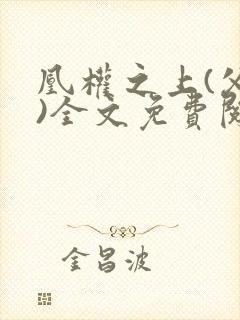 凰權之上(父
)全文免費閱
金昌波